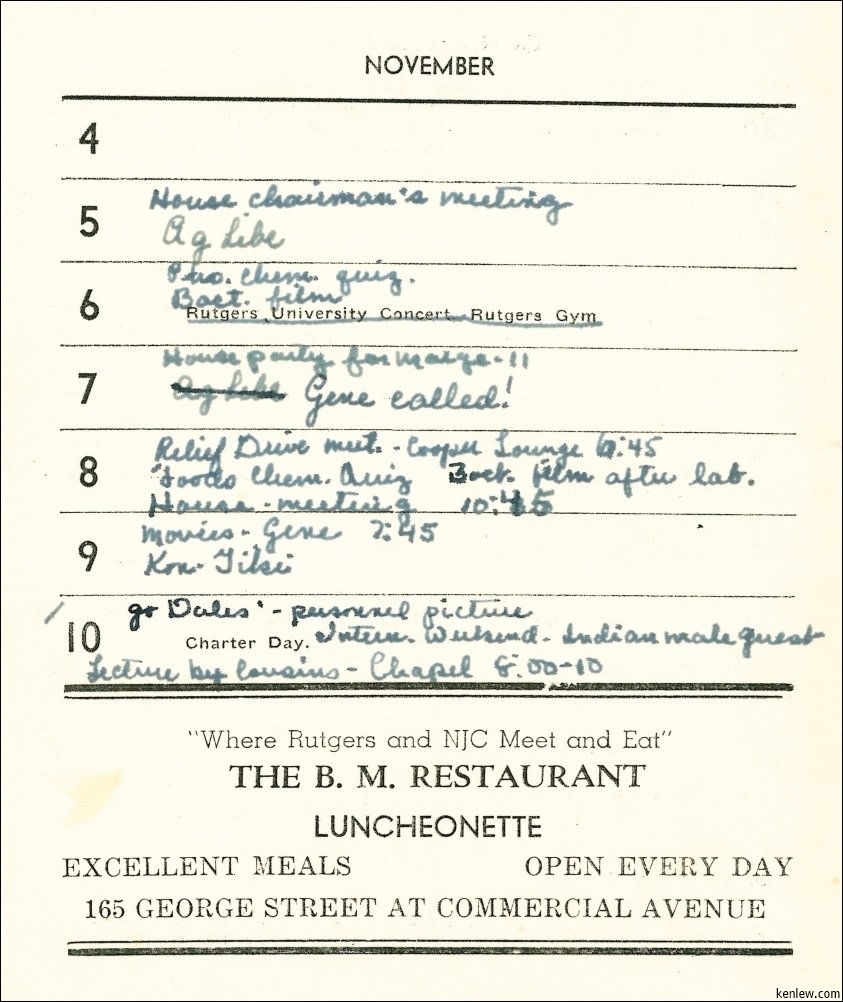 NOVEMBER
4
5
House chairman's meeting
Ag Libe
6
chem. quiz.
Bact. film
Rutgers University Concert Rutgers Gym
7
House party for Marge - 11
Ag Libe Gene called!
8
Relief Drive meet. - Cooper Lounge 6:45
Foods Chem. Quiz Bact. film after lab.
House - meeting 10:45
9
Movies - Gene 7:45
Kon-Tiki
10
go Dales' - personnel picture
Charter Day. Intern. Weekend - Indian male guest
Lecture by Cousins - Chapel 8:00-10
"Where Rutgers and NJC Meet and Eat"
THE B. M. RESTAURANT
LUNCHEONETTE
EXCELLENT MEALS OPEN EVERY DAY
165 GEORGE STREET AT COMMERCIAL AVENUE
kenlew.com